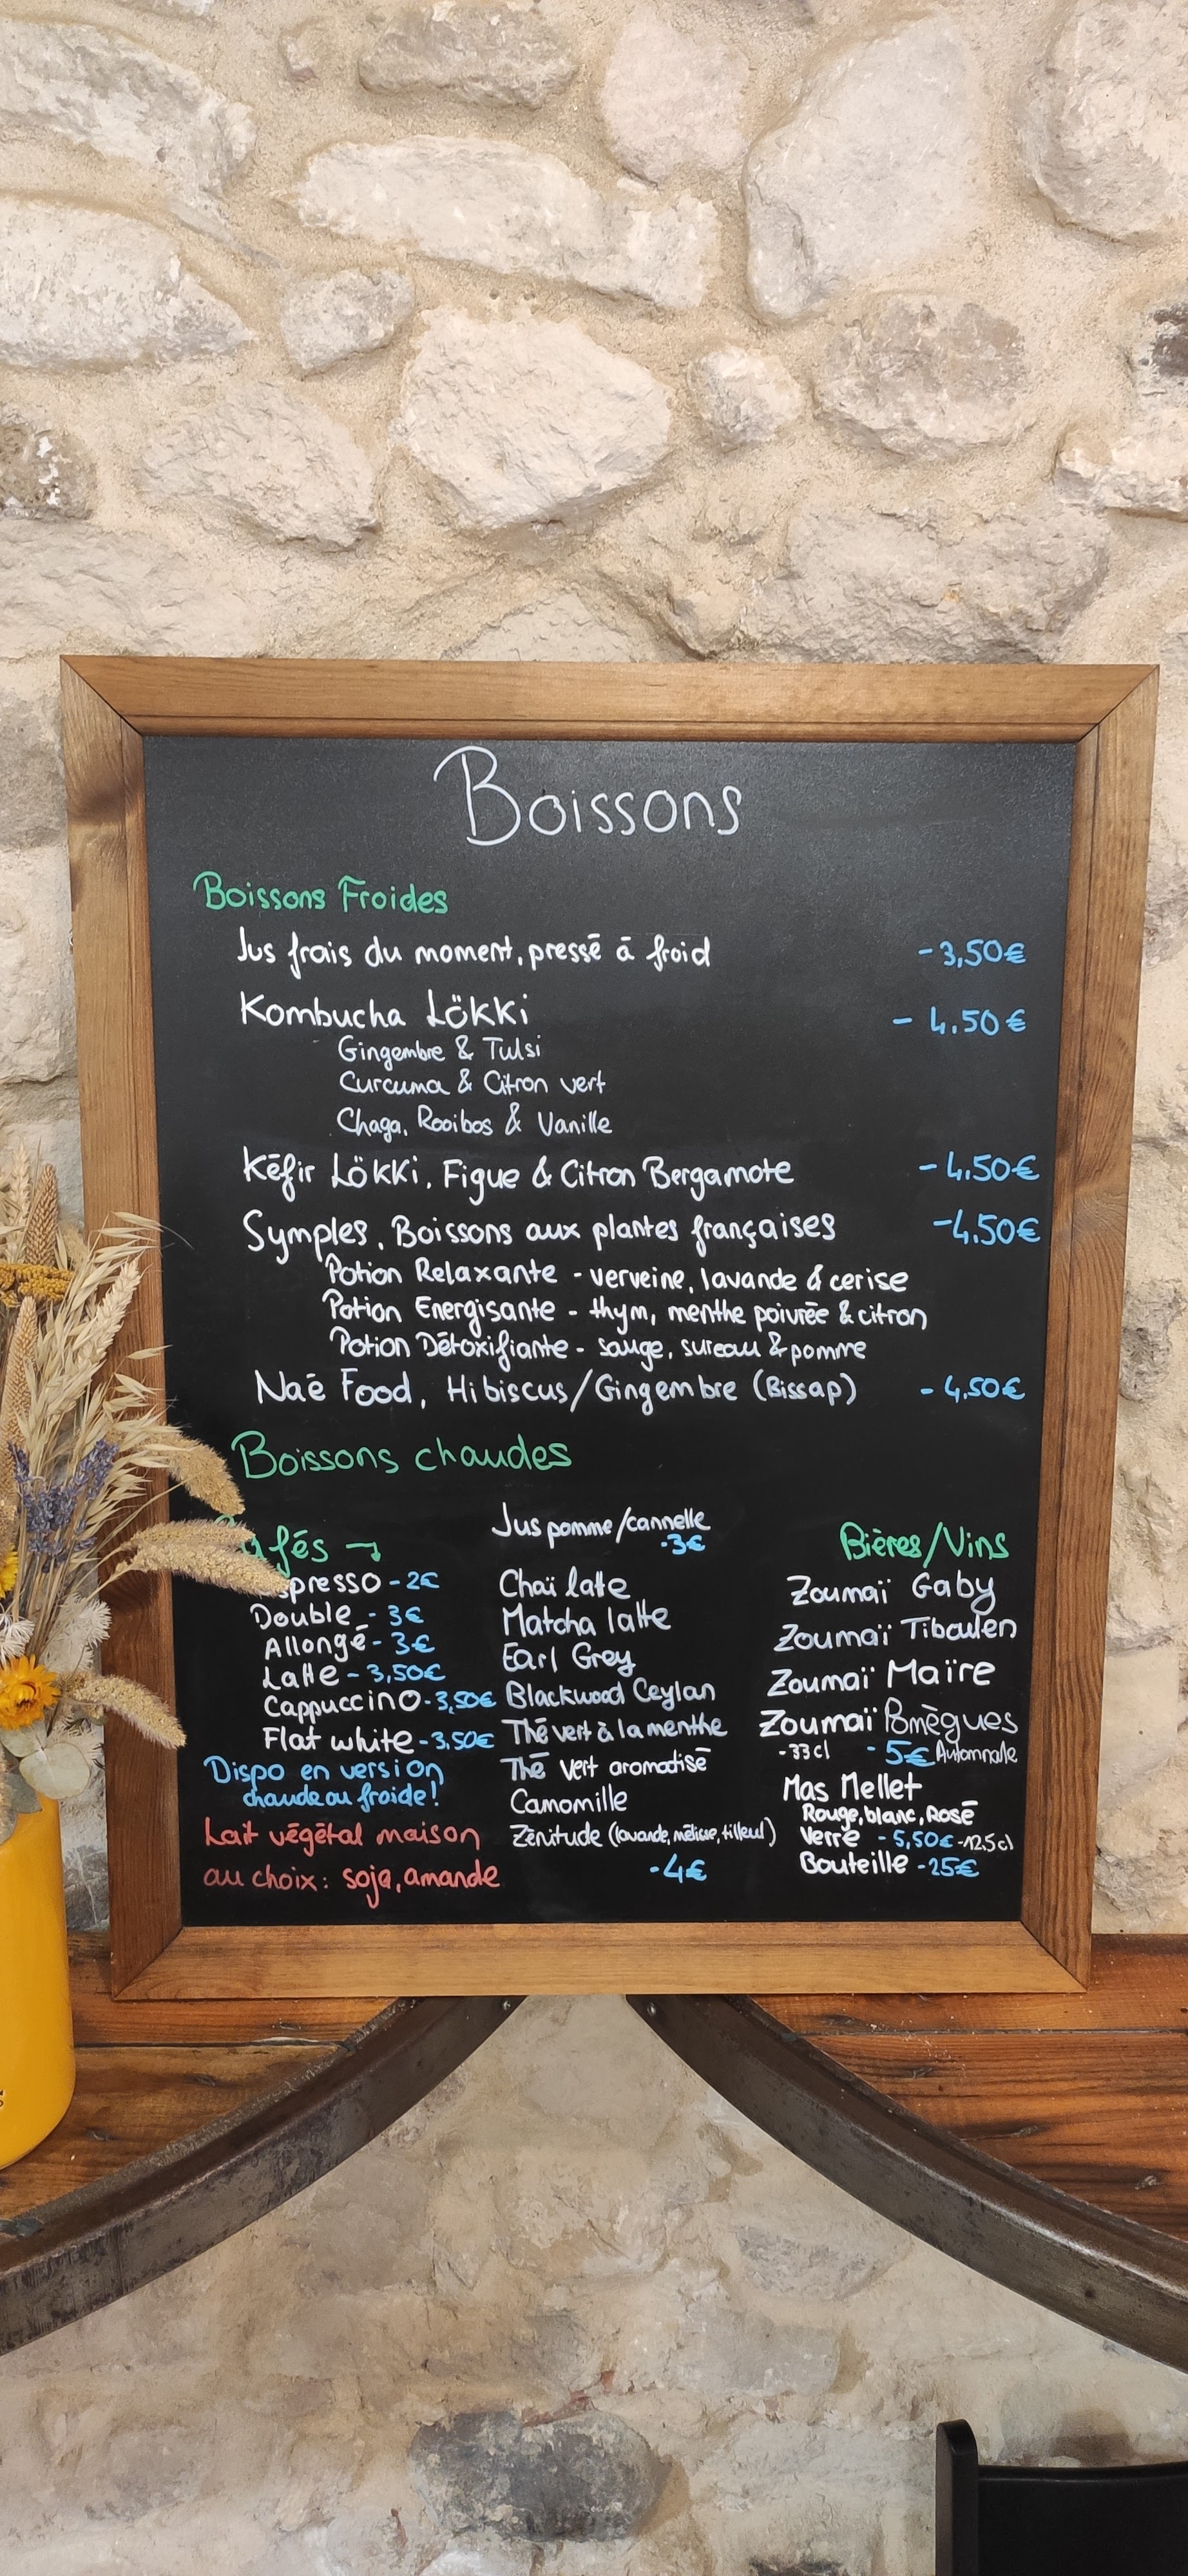 Boissons
Boissons Froides
Jus frais du moment, pressé à froid -3,50€
Kombucha Lökki - 4.50€
Gingembre & Tulsi
Curcuma & Citron vert
Chaga, Rooibos & Vanille
Kéfir Lökki, Figue & Citron Bergamote -4.50€
Symples, Boissons aux plantes françaises -4.50€
Potion Relaxante - verveine, lavande & cerise
Potion Energisante - thym, menthe poivrée & citron
Potion Détoxifiante - sauge, sureau & pomme
Naé Food, Hibiscus/Gingembre (Bissap) - 4.50€
Boissons chaudes
fés →
presso - 2€
Double - 3€
Allongé - 3€
Latte - 3,50€
Cappuccino - 3,50€
Flat white - 3.50€
Dispo en version
chaude ou froide!
Lait végétal maison
au choix: soja, amande
Jus pomme/cannelle
-3€
Chaï latte
Matcha latte
Earl Grey
Blackwood Ceylan
Thé vert à la menthe
Thé vert aromatisé
Camomille
Zénitude (lavande, mélisse, tilleul)
-4€
Bières/Vins
Zoumaï Gaby
Zoumaï Tiboulen
Zoumaï Maïre
Zoumaï Pomègues
-33cl - 5€ Automnale
Mas Mellet
Rouge, blanc, Rosé
Verre - 5,50€ -12.5cl
Bouteille - 25€